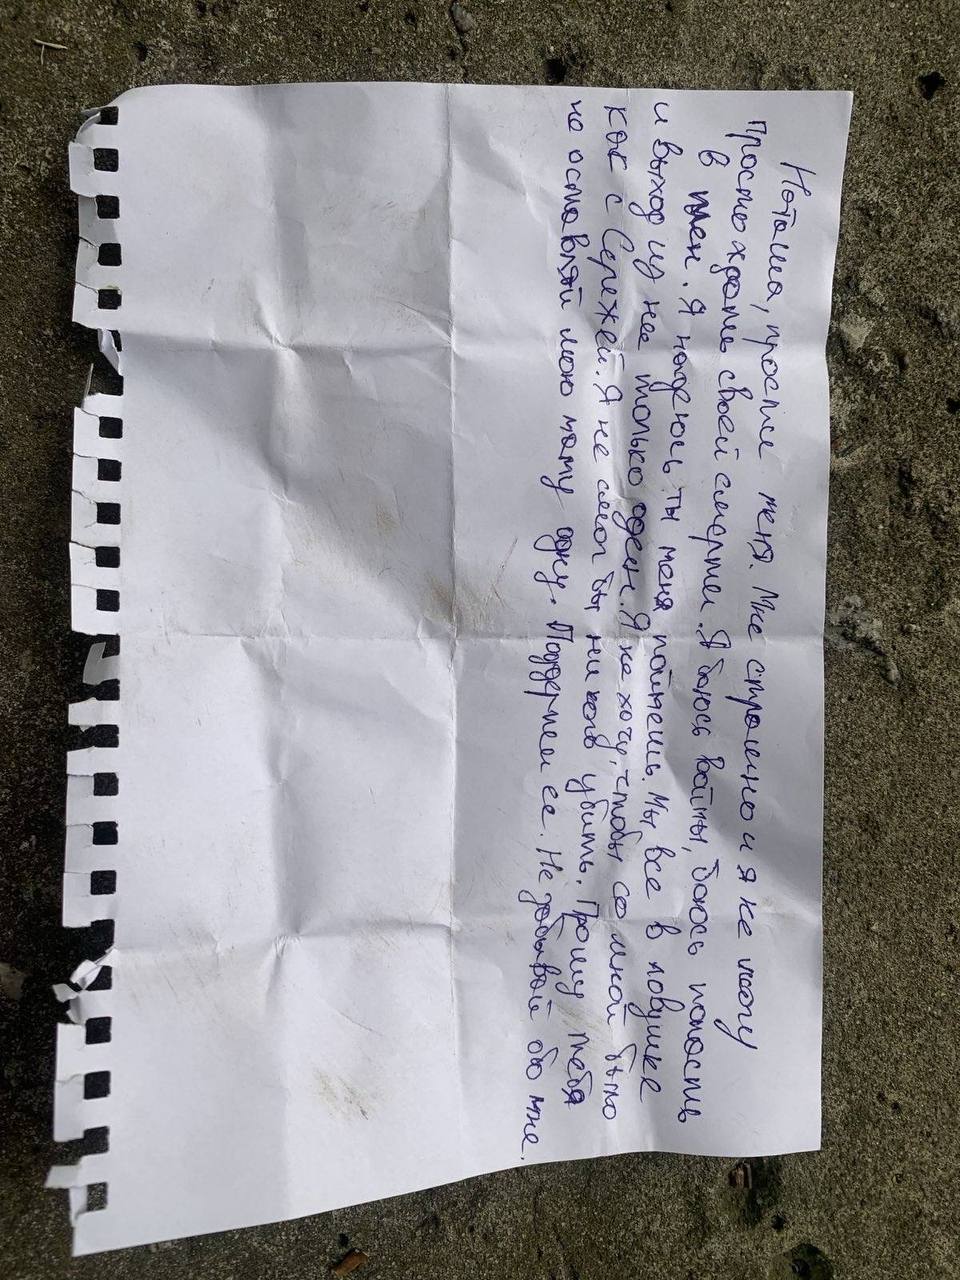 Наташа, прости меня. Мне страшно и я не могу
просто ждать своей смерти. Я боюсь войны, боюсь попасть
в плен. Я надеюсь ты меня поймешь. Мы все в ловушке
и выход из нее только один. Я не хочу, чтобы со мной было
как с Сережей. Я не смог бы никого убить. Прошу тебя
не оставляй мою маму одну. Поддержи ее. Не забывай обо мне.